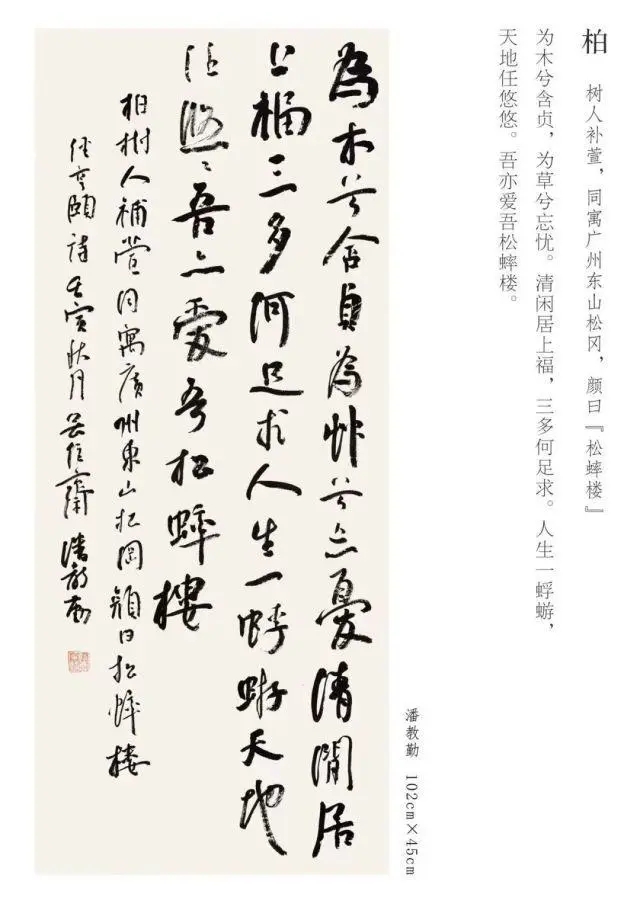 柏 树人补萱，同寓广州东山松冈，颜曰『松蟀楼』
为木兮含贞，为草兮忘忧。清闲居上福，三多何足求。人生一蜉蝣，
天地任悠悠。吾亦爱吾松蟀楼。
潘教勤 102cm×45cm
為木兮含貞為艸兮忘憂清閒居
上福三多何足求人生一蜉蝣天地
任悠〻吾亦愛吾松蟀樓
柏樹人補萱同寓廣州東山松岡顏曰松蟀樓
頤詩壬寅秋月齋潘教勤